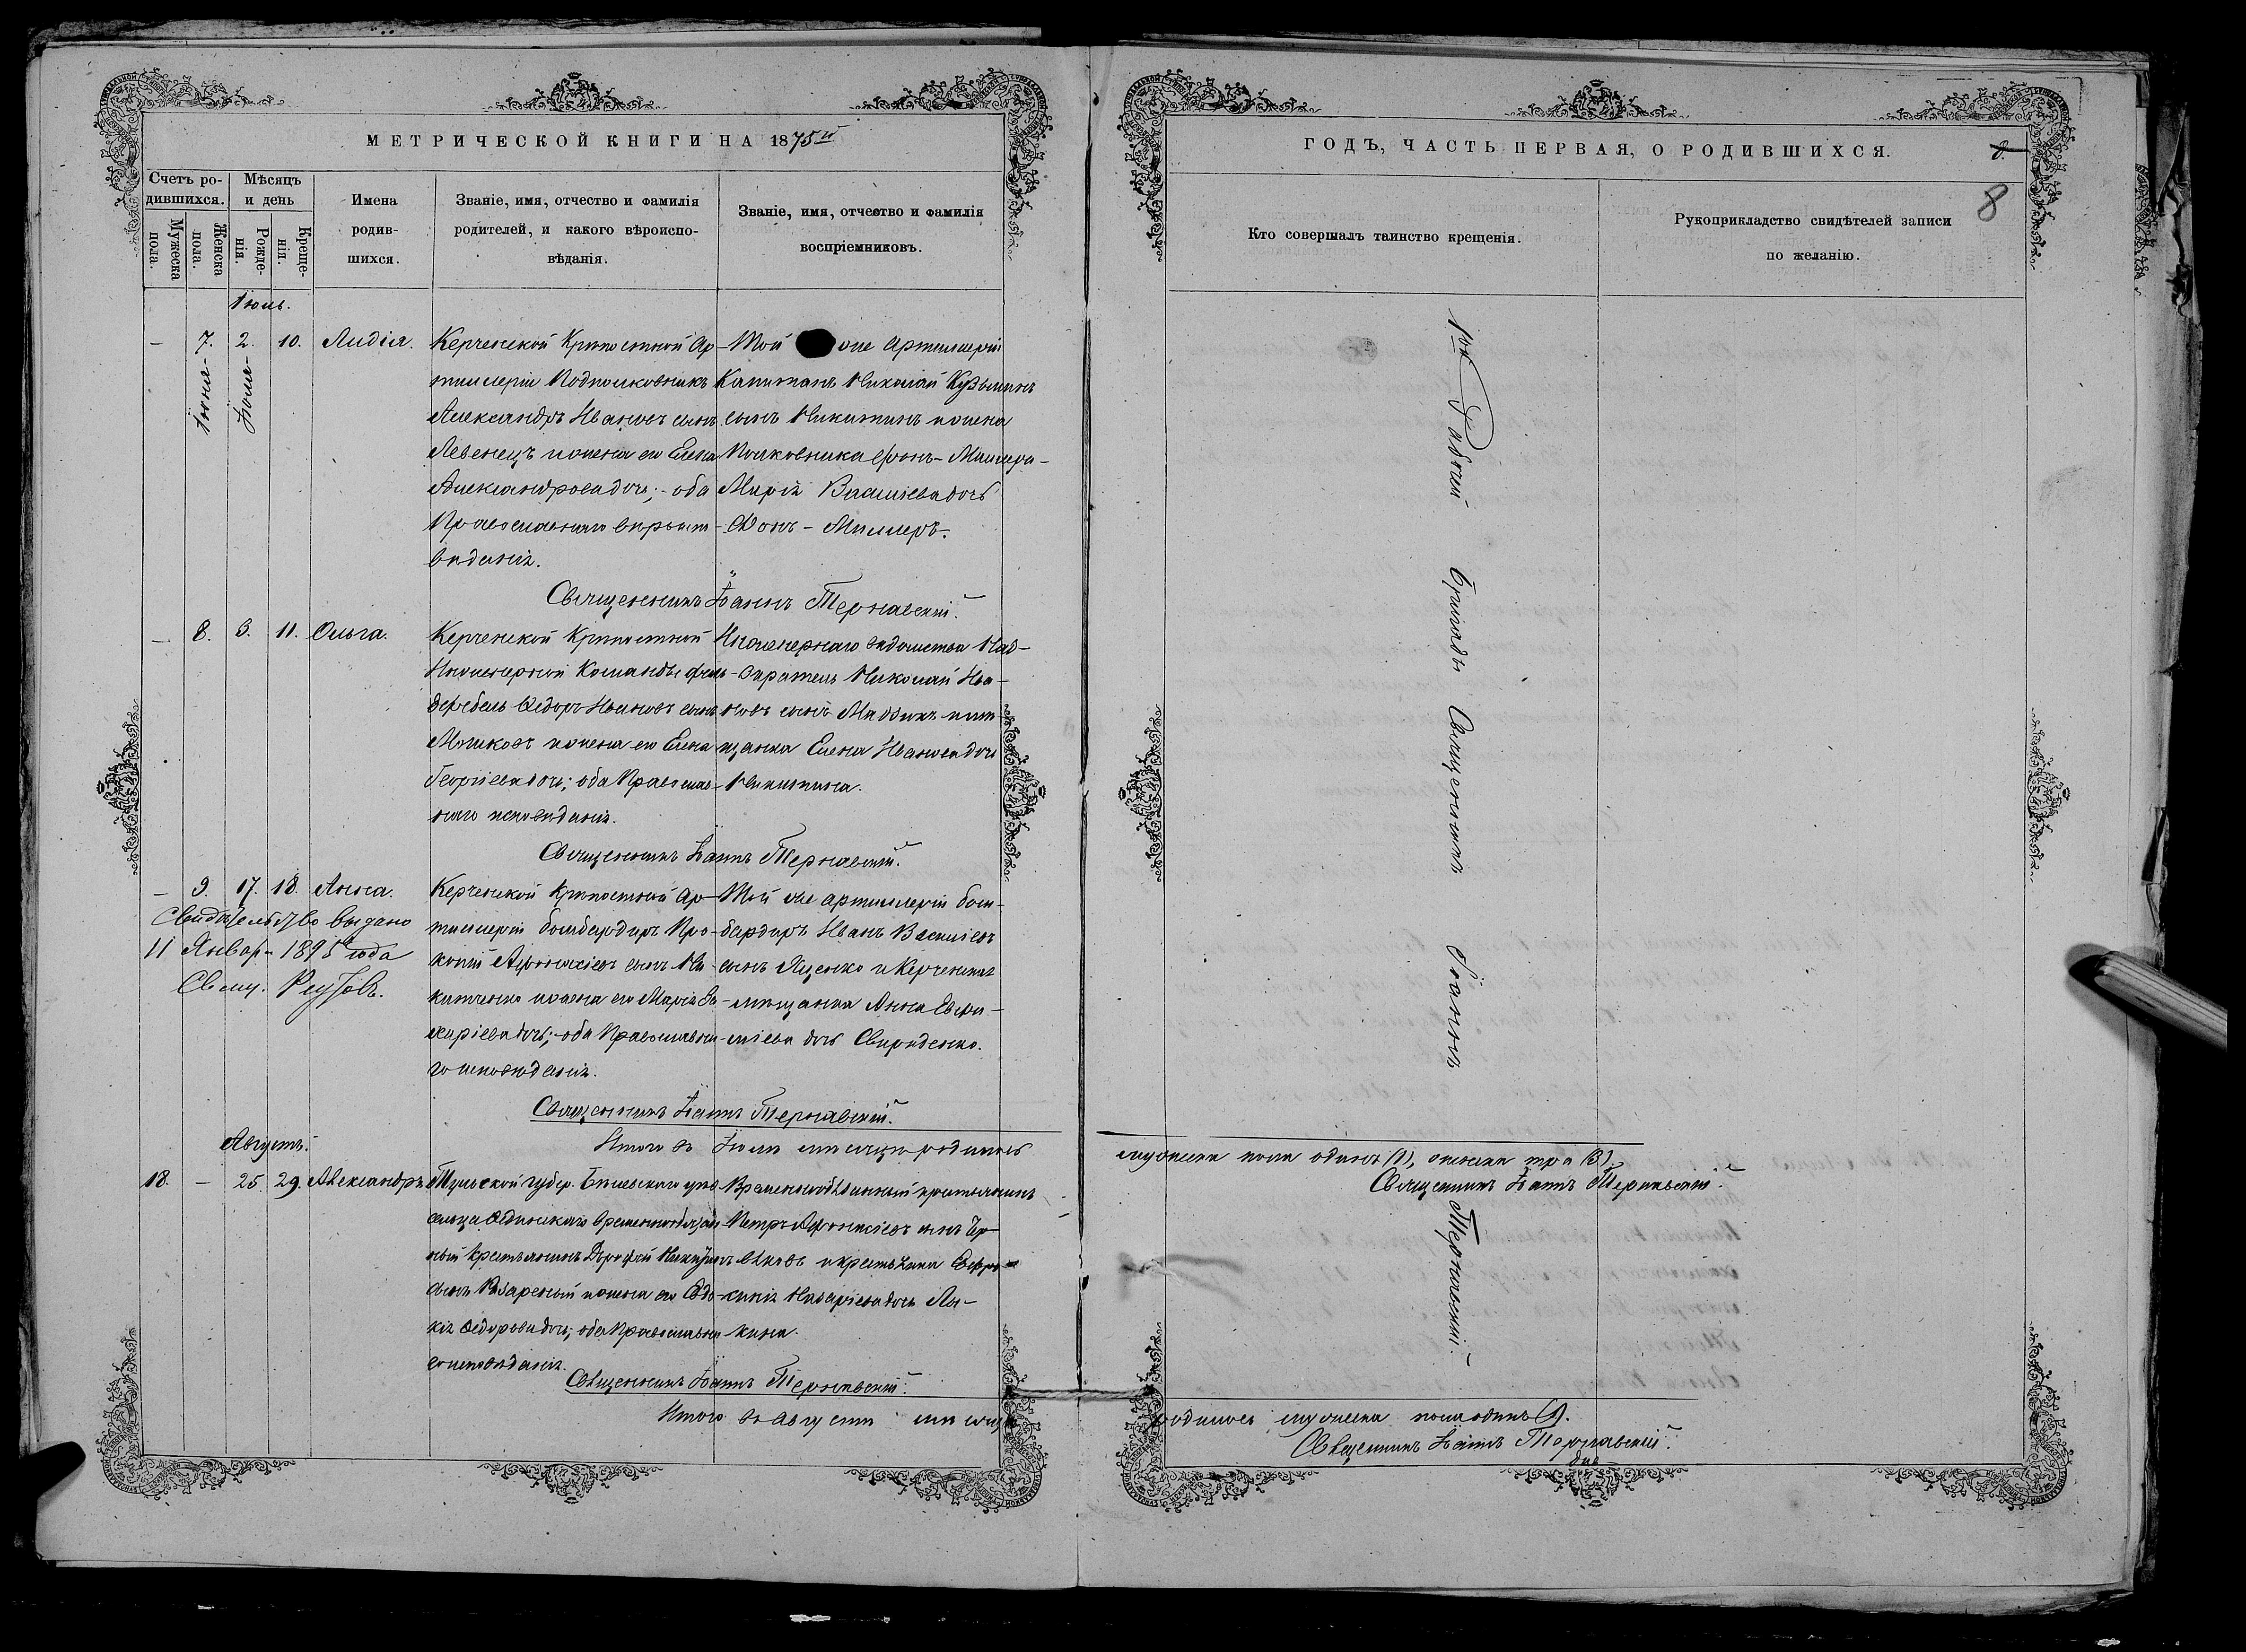 МЕТРИЧЕСКОЙ КНИГИ НА 1875й
Счетъ ро-
дившихся.
Мѣсяцъ
и день
Мужеска
пола.
Женска
пола.
Рожде-
нія.
Креще-
нія.
Имена
родив-
шихся.
Званіе, имя, отчество и фамилія
родителей, и какого вѣроиспо-
вѣданія.
Званіе, имя, отчество и фамилія
воспріемниковъ.
Іюль.
— 7. 2. 10. Лидія.
Іюня Іюля
Керченской Крѣпостной Ар-
тиллеріи Подполковникъ
Александръ Ивановъ сынъ
Левенецъ и жена его Елена
Александрова дочь; оба
Православнаго вѣроис-
вѣданія.
Той же артиллеріи
Капитанъ Николай Кузьминъ
сынъ Никитинъ и жена
Полковника фонъ-Миллера
Марія Васильева дочь
Фонъ-Миллеръ.
Священникъ Іоаннъ Тернавскій.
— 8. 9. 11. Ольга.
Керченской Крѣпостной
Инженерной Команды фельд-
фебель Федоръ Ивановъ сынъ
Мошковъ и жена его Елена
Георгіева дочь; оба Православ-
наго исповѣданія.
Инженернаго вѣдомства Над-
зиратель Николай Ива-
новъ сынъ и мѣ-
щанка Елена Иванова дочь
Никитина.
Священникъ Іоаннъ Тернавскій.
— 9. 17. 18. Анна.
Свидѣтельство выдано
11 Январ. 1895 года
Свящ. Реутовъ.
Керченской Крѣпостной Ар-
тиллеріи бомбардиръ Про-
копій Афанасіевъ сынъ Ни-
китченко и жена его Марія За-
харіева дочь; оба Православна-
го исповѣданія.
Той же артиллеріи бом-
бардиръ Иванъ Васильевъ
сынъ Яценко и Керченская
мѣщанка Анна
дочь Свириденко.
Священникъ Іоаннъ Тернавскій.
Итого въ Іюлѣ мѣсяцѣ родилось
Августъ.
18. — 25. 29. Александръ
Тульской губер. Бѣлевскаго уѣз.
сельца временнообязан-
ный крестьянинъ Дорофей Никитинъ
сынъ и жена его Евдо-
кія Федорова дочь; оба Православна-
го исповѣданія.
Временнообязанный крестьянинъ
Петръ Афанасіевъ сынъ
и крестьянка Евфро-
синія Назаріева дочь Ля-
кина.
Священникъ Іоаннъ Тернавскій.
Итого въ Августѣ мѣсяцѣ
ГОДЪ, ЧАСТЬ ПЕРВАЯ, О РОДИВШИХСЯ.
8.
8
Кто совершалъ таинство крещенія.
Рукоприкладство свидѣтелей записи
по желанію.
Бригады Священникъ Іоаннъ Тернавскій.
мужеска пола одинъ (1), женска три (3).
Священникъ Іоаннъ Тернавскій.
родилось мужеска пола одинъ (1).
Священникъ Іоаннъ Тернавскій.